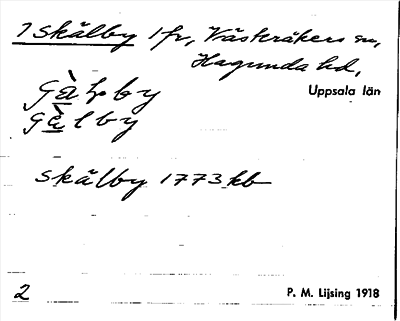 1 Skälby 1 fr, Västeråkers sn,
Hagunda hd,
Uppsala län
Skälby 1773 kb
2
P. M. Lijsing 1918